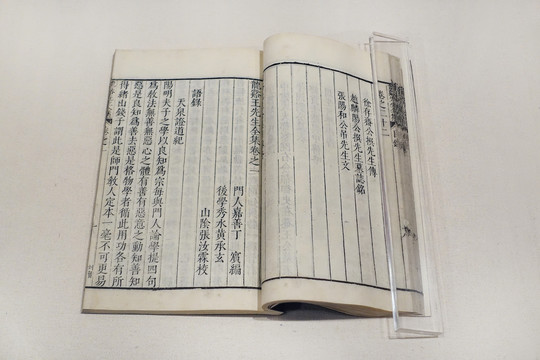 卷之二十二
徐存齋公撰先生傳
趙麟陽公撰先生墓誌銘
張陽和公吊先生文
龍谿王先生全集卷之一
門人嘉善丁賓編
後學秀水黃承玄
山陰張汝霖校
語錄
天泉證道紀
陽明夫子之學以良知為宗每與門人論學提四句
為教法無善無惡心之體有善有惡意之動知善知
惡是良知為善去惡是格物學者循此用功各有所
得緒山錢子謂此是師門教人定本一毫不可更易